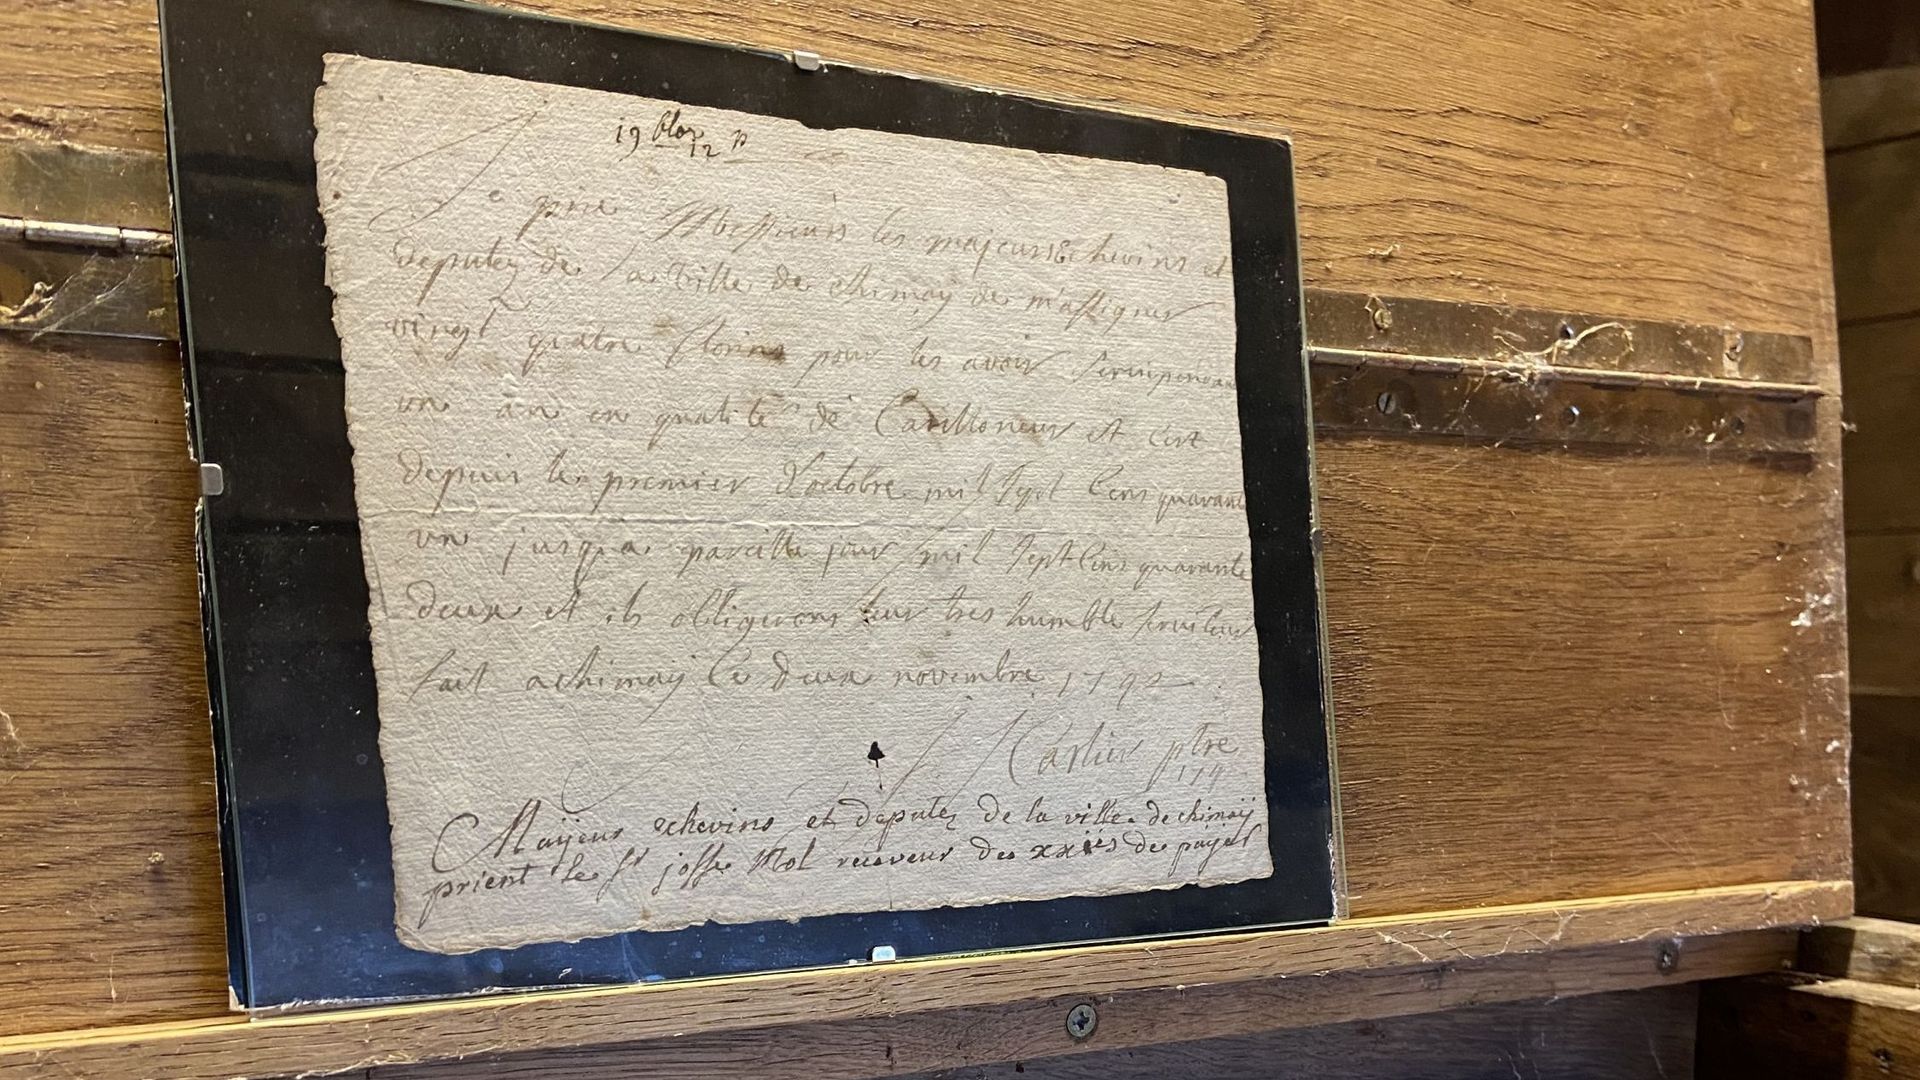 19 flor 12 p
Je prie Messieurs les majeurs Echevins et
deputez de la ville de chimaÿ de m'assigner
vingt quatre florins pour les avoir servi pendan
un an en qualité de Carilloneur et c'est
depuis le premier d'octobre mil sept cens quarante
un jusqu'a pareille jour mil sept cens quarante
deux et ils obligeront leur tres humble serviteur
fait a chimaÿ le deux novembre 1742
Carlier ptre
174
Maÿeur echevins et deputez de la ville de chimaÿ
prient le Sr josse Mol receveur des xxies de païer